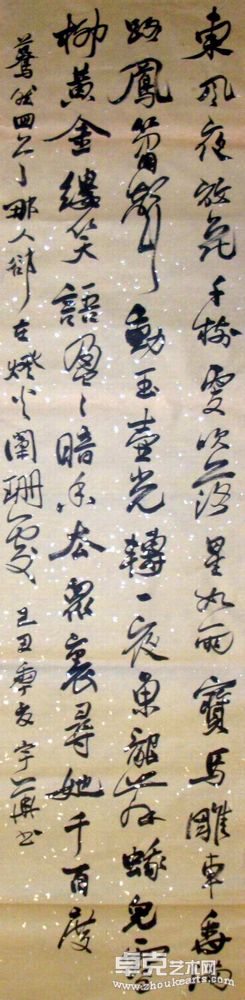 東風夜放花千樹更吹落星如雨寶馬雕車香滿
路鳳簫聲動玉壺光轉一夜魚龍舞蛾兒雪
柳黃金縷笑語盈〻暗香去衆裏尋她千百度
驀然回首那人卻在燈火闌珊處 己丑季 宇 書
卓克艺术网
www.zhoukearts.com